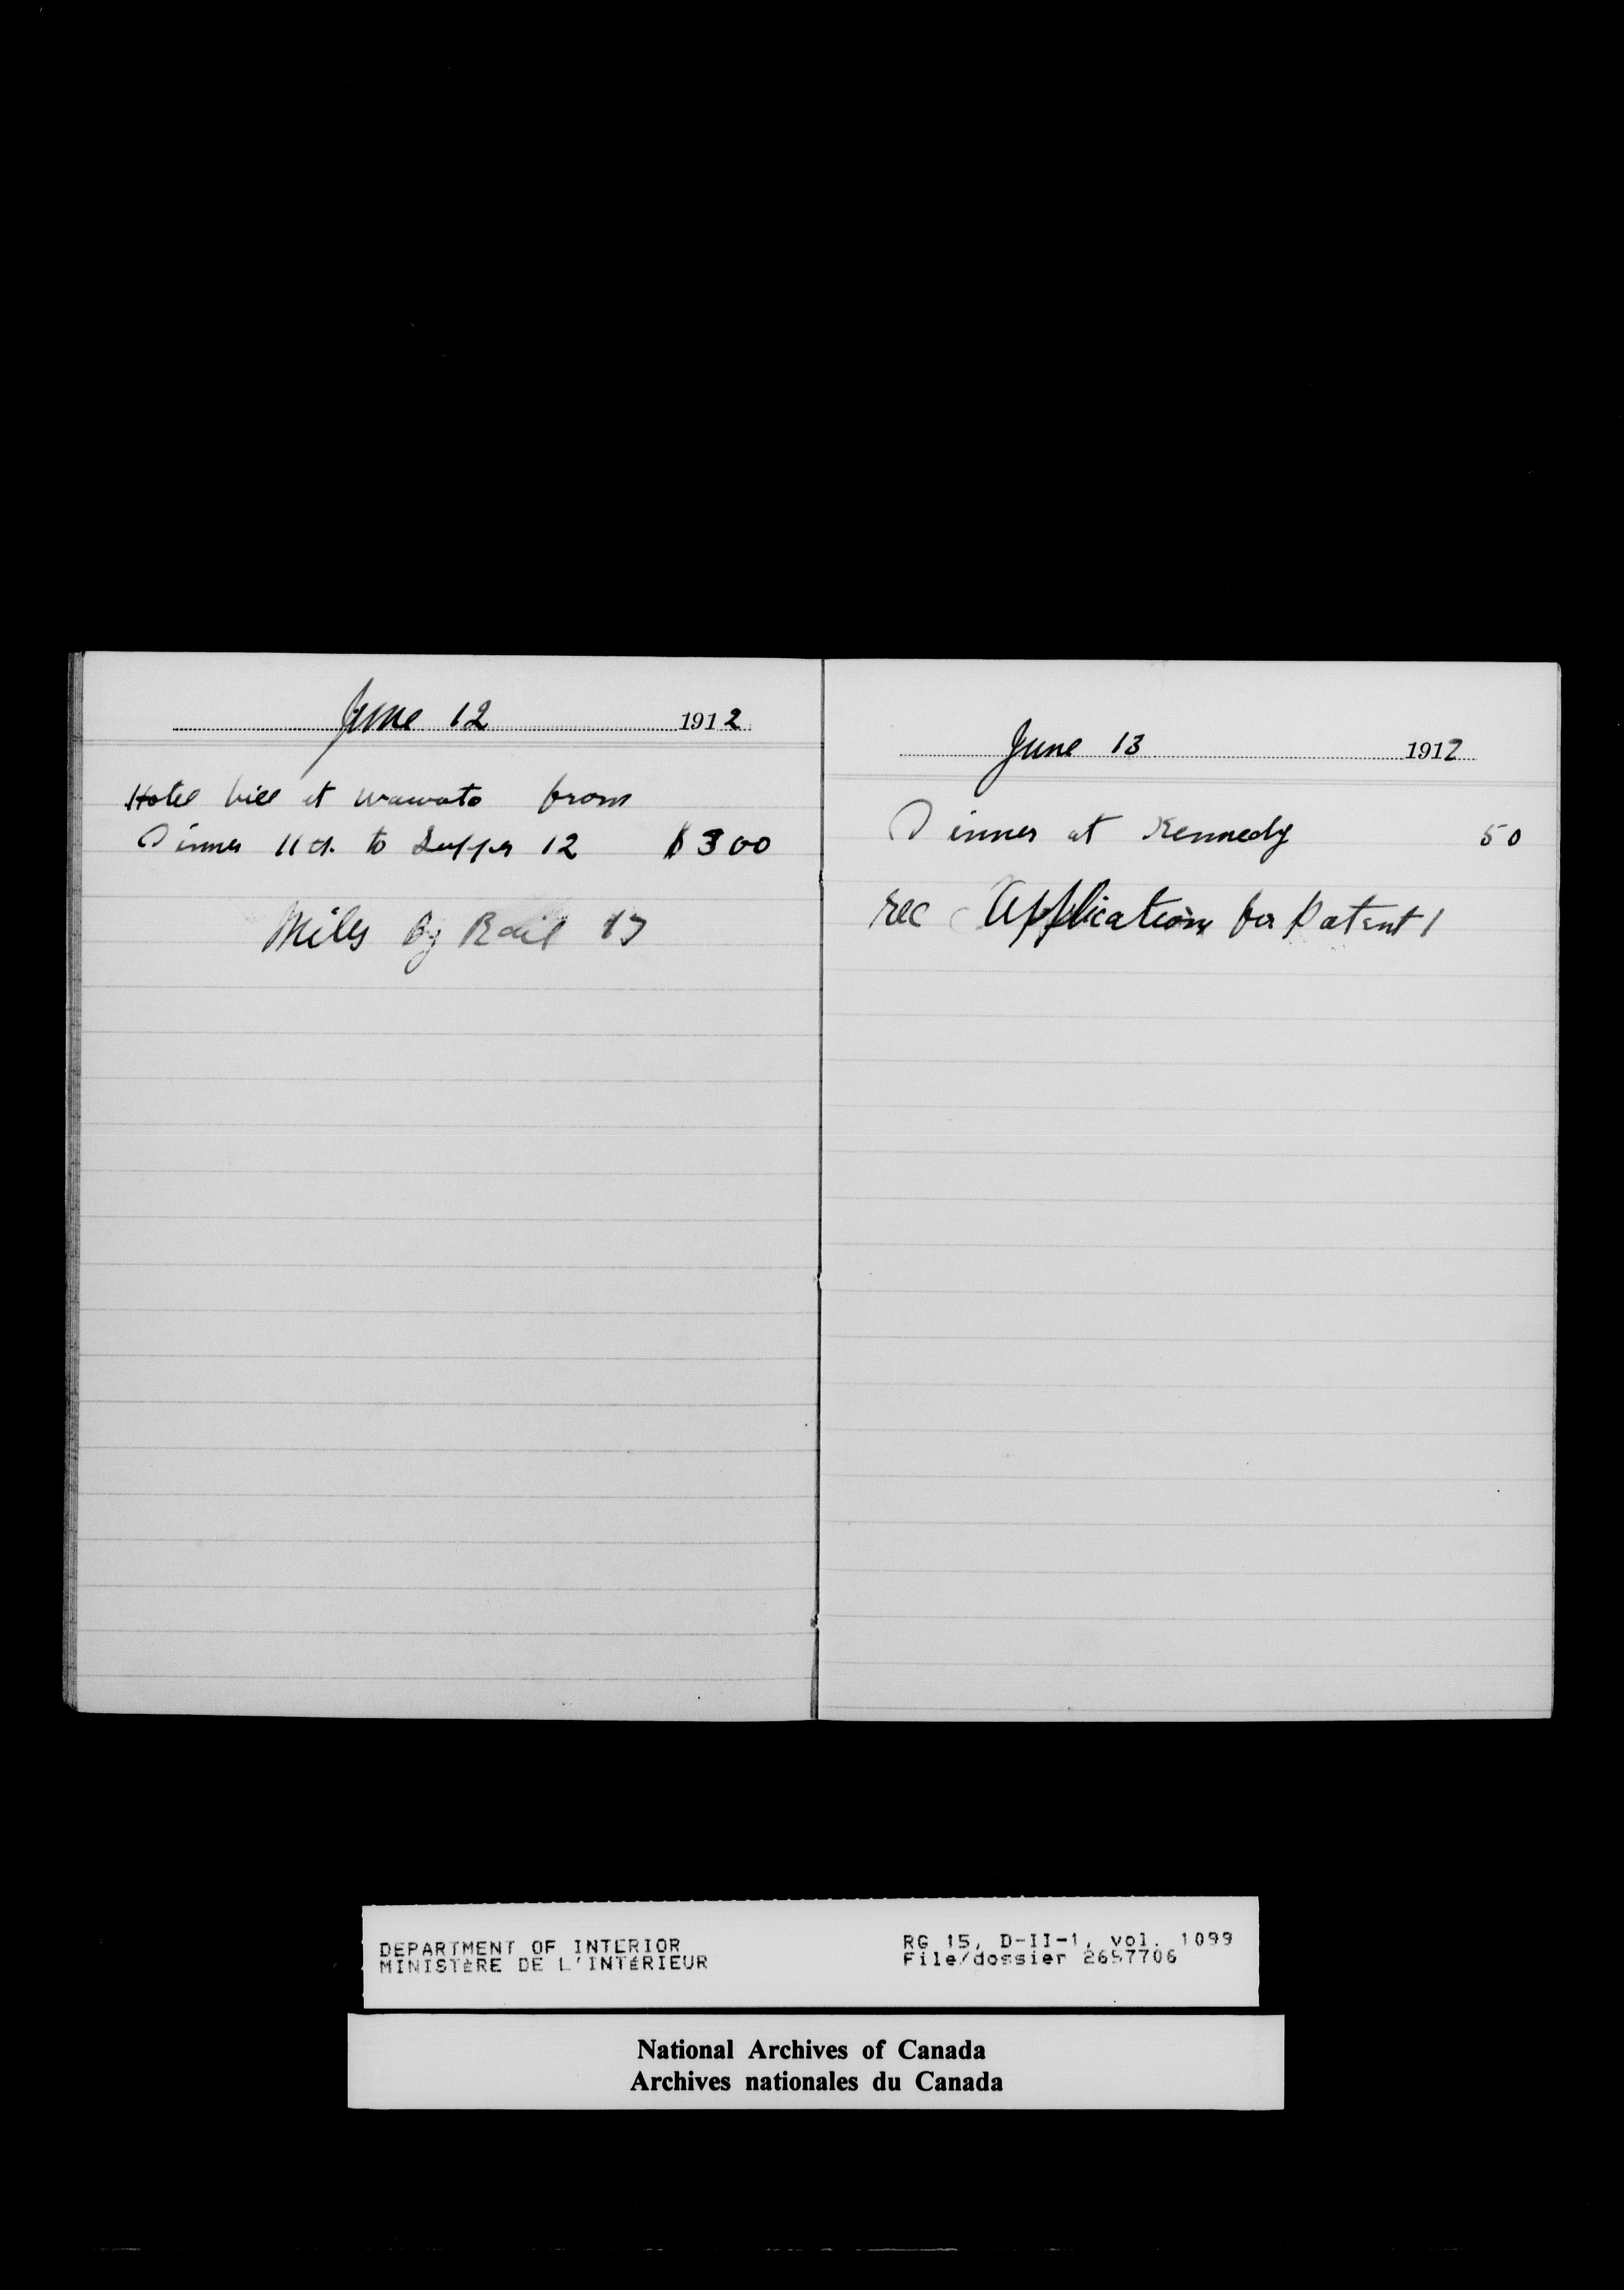 June 12 1912
Hotel bill at Wawota from
Dinner 11th to Supper 12 $3 00
Miles By Rail 17
June 13 1912
Dinner at Kennedy 50
rec Application for Patent 1
DEPARTMENT OF INTERIOR
MINISTÈRE DE L'INTÉRIEUR
RG 15, D-II-1, vol. 1099
File/dossier 2657706
National Archives of Canada
Archives nationales du Canada